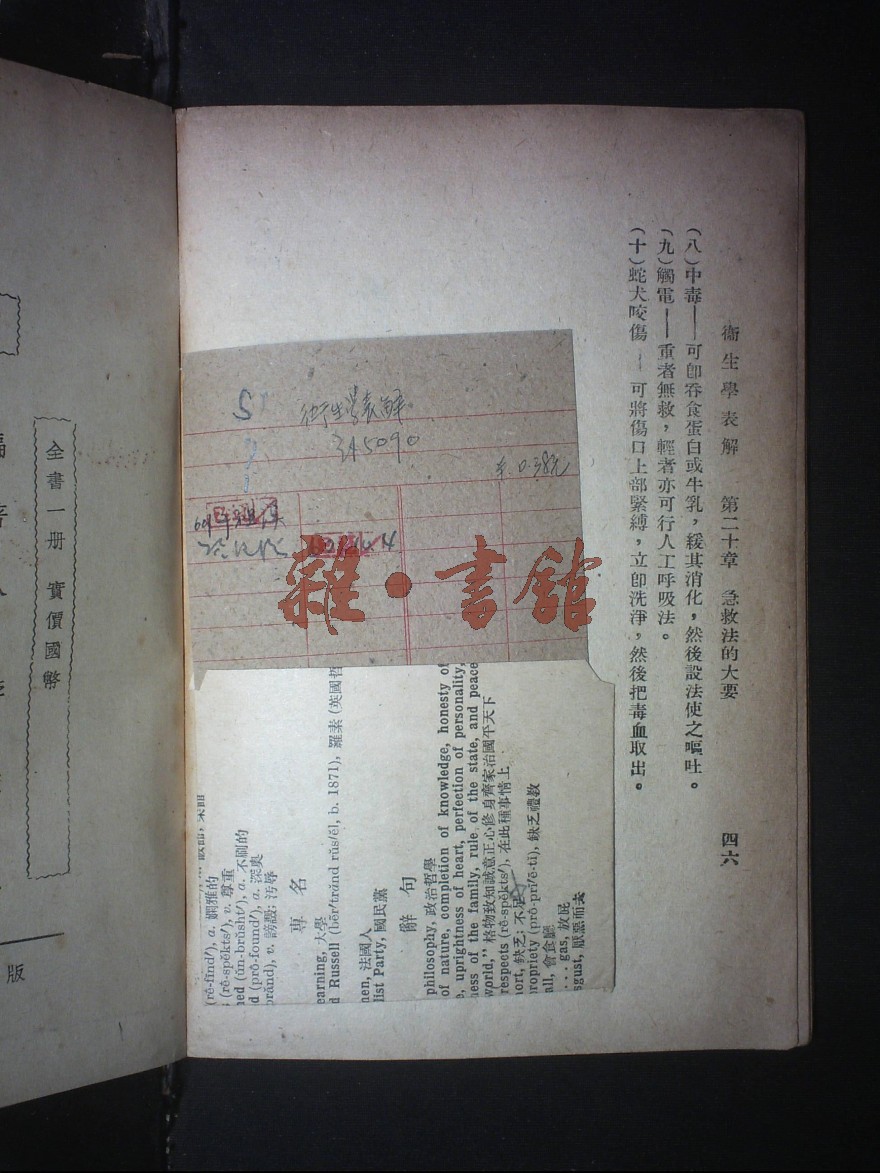 衞生學表解　第二十章　急救法的大要　四六
(八)中毒——可卽吞食蛋白或牛乳，緩其消化，然後設法使之嘔吐。
(九)觸電——重者無救，輕者亦可行人工呼吸法。
(十)蛇犬咬傷——可將傷口上部緊縛，立卽洗淨，然後把毒血取出。
衛生學表解
345090
0.38元
雜·書館
(rê-fīnd′), a. 嫻雅的
(rê-spĕkts′), v. 尊重
ned (ŭn-brŭsht′), a. 不刷的
d (prô-found′), a. 深奥
brănd), v. 謗毀; 汚辱
專 名
earning, 大學
d Russell (bẽr′trănd rŭs′ĕl, b. 1871), 羅素 (英國哲
men, 法國人
list Party, 國民黨
辭 句
philosophy, 政治哲學
of nature, completion of knowledge, honesty of
e, uprightness of heart, perfection of personality,
ness of the family, rule of the state, and peace
world,” 格物致知誠意正心修身齊家治國平天下
respects (rê-spĕkts′), 在此種事情上
ort, 缺乏; 不足
propriety (prô-prī′ĕ-tĭ), 缺乏禮教
all, 會食廳
... gas, 放屁
sgust, 厭惡而去
全書一册 實價國幣
版